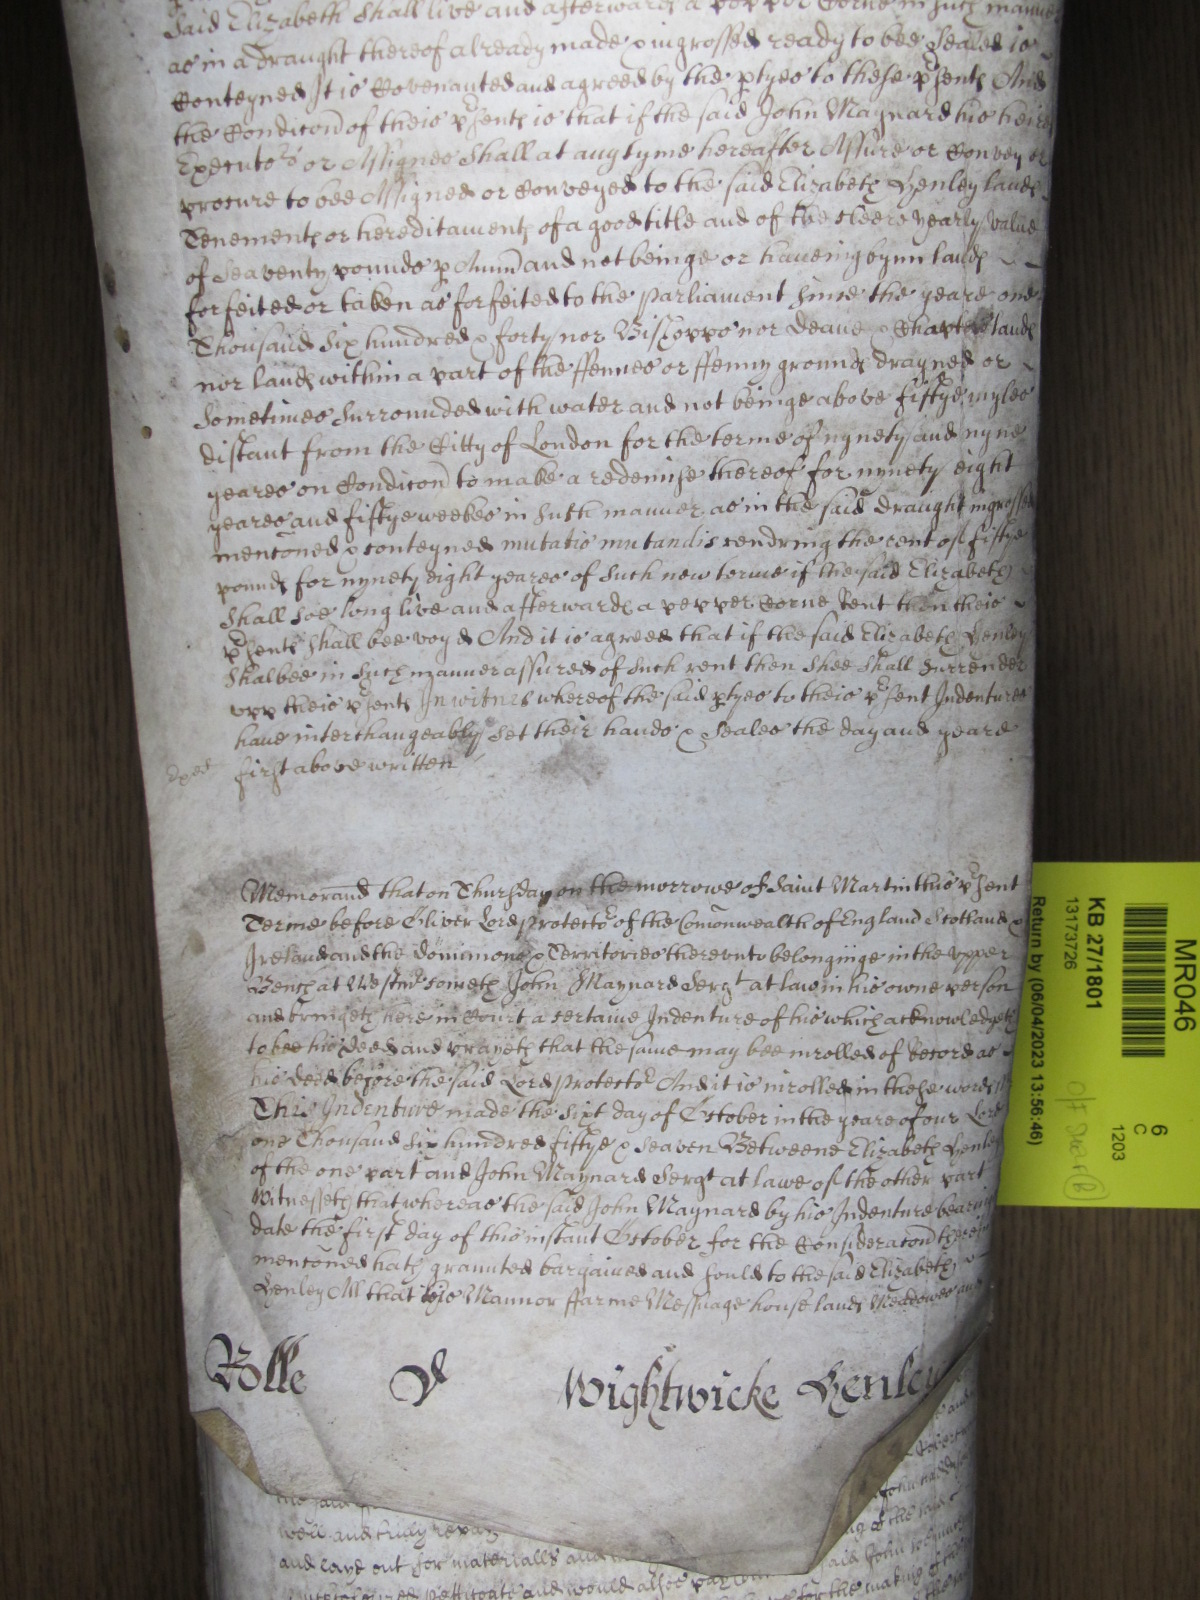 Said Elizabeth Shall live and afterwards a pepper Corne in such manner
as in a draught thereof already made & ingrossed ready to bee Sealed is
Conteyned It is Covenanted and agreed by the ptyes to these psents And
the Condicon of theis psents is that if the said John Maynard his heires
Executors or Assignes Shall at any tyme hereafter Assure or Convey or
procure to bee Assigned or Conveyed to the said Elizabeth Henley lands
Tenements or hereditaments of a good title and of the cleere yearly value
of Seaventy pounds p Annu and not beinge or haveing byn lands
forfeited or taken as forfeited to the Parliament Since the yeare one
Thousand Six hundred & forty nor Bishopps nor Deane & Chapters lands
nor lands within a part of the ffennes or ffenny grounds drayned or
Sometimes Surrounded with water and not beinge above fiftye myles
distant from the Citty of London for the terme of nynety and nyne
yeares on Condicon to make a redemise thereof for nynety eight
yeares and fiftye weekes in Such manner as in the said draught ingrossed
menconed & conteyned mutatis mutandis rendring the rent of fiftye
pounds for nynety eight yeares of Such new terme if the said Elizabeth
Shall soe long live and afterwards a pepper Corne Rent then theis
psents Shall bee voyd And it is agreed that if the said Elizabeth Henley
Shalbee in Such manner assured of Such rent then Shee Shall Surrender
upp theis psents In witnes whereof the said ptyes to theis psent Indentures
have interchangeably Set their hands & Seales the day and yeare
first above written
Memorand that on Thursday on the morrowe of Saint Martin this psent
Terme before Oliver Lord Protector of the Comonwealth of England Scotland &
Ireland and the Dominions & Territories thereunto belonginge in the upper
Bench at Westmr cometh John Maynard Sergt at law in his owne person
and bringeth here in Court a certaine Indenture of his which acknowledgeth
to bee his Deed and prayeth that the same may bee inrolled of Record as
his Deed before the said Lord Protector And it is inrolled in these words
This Indenture made the Sixt day of October in the yeare of our Lord
one Thousand Six hundred fiftye & Seaven Betweene Elizabeth Henley
of the one part and John Maynard Sergt at lawe of the other part
Witnesseth that whereas the said John Maynard by his Indenture bearing
date the first day of this instant October for the Consideracon therein
menconed hath graunted bargained and sould to the said Elizabeth
Henley All that his Mannor ffarme Messuage house lands Meadowes and
Rolle Wightwicke Henley
well and truly
and layd out for materialls and
making of
MR046
6
C
1203
KB 27/1801
13173726
Return by (06/04/2023 13:56:46)